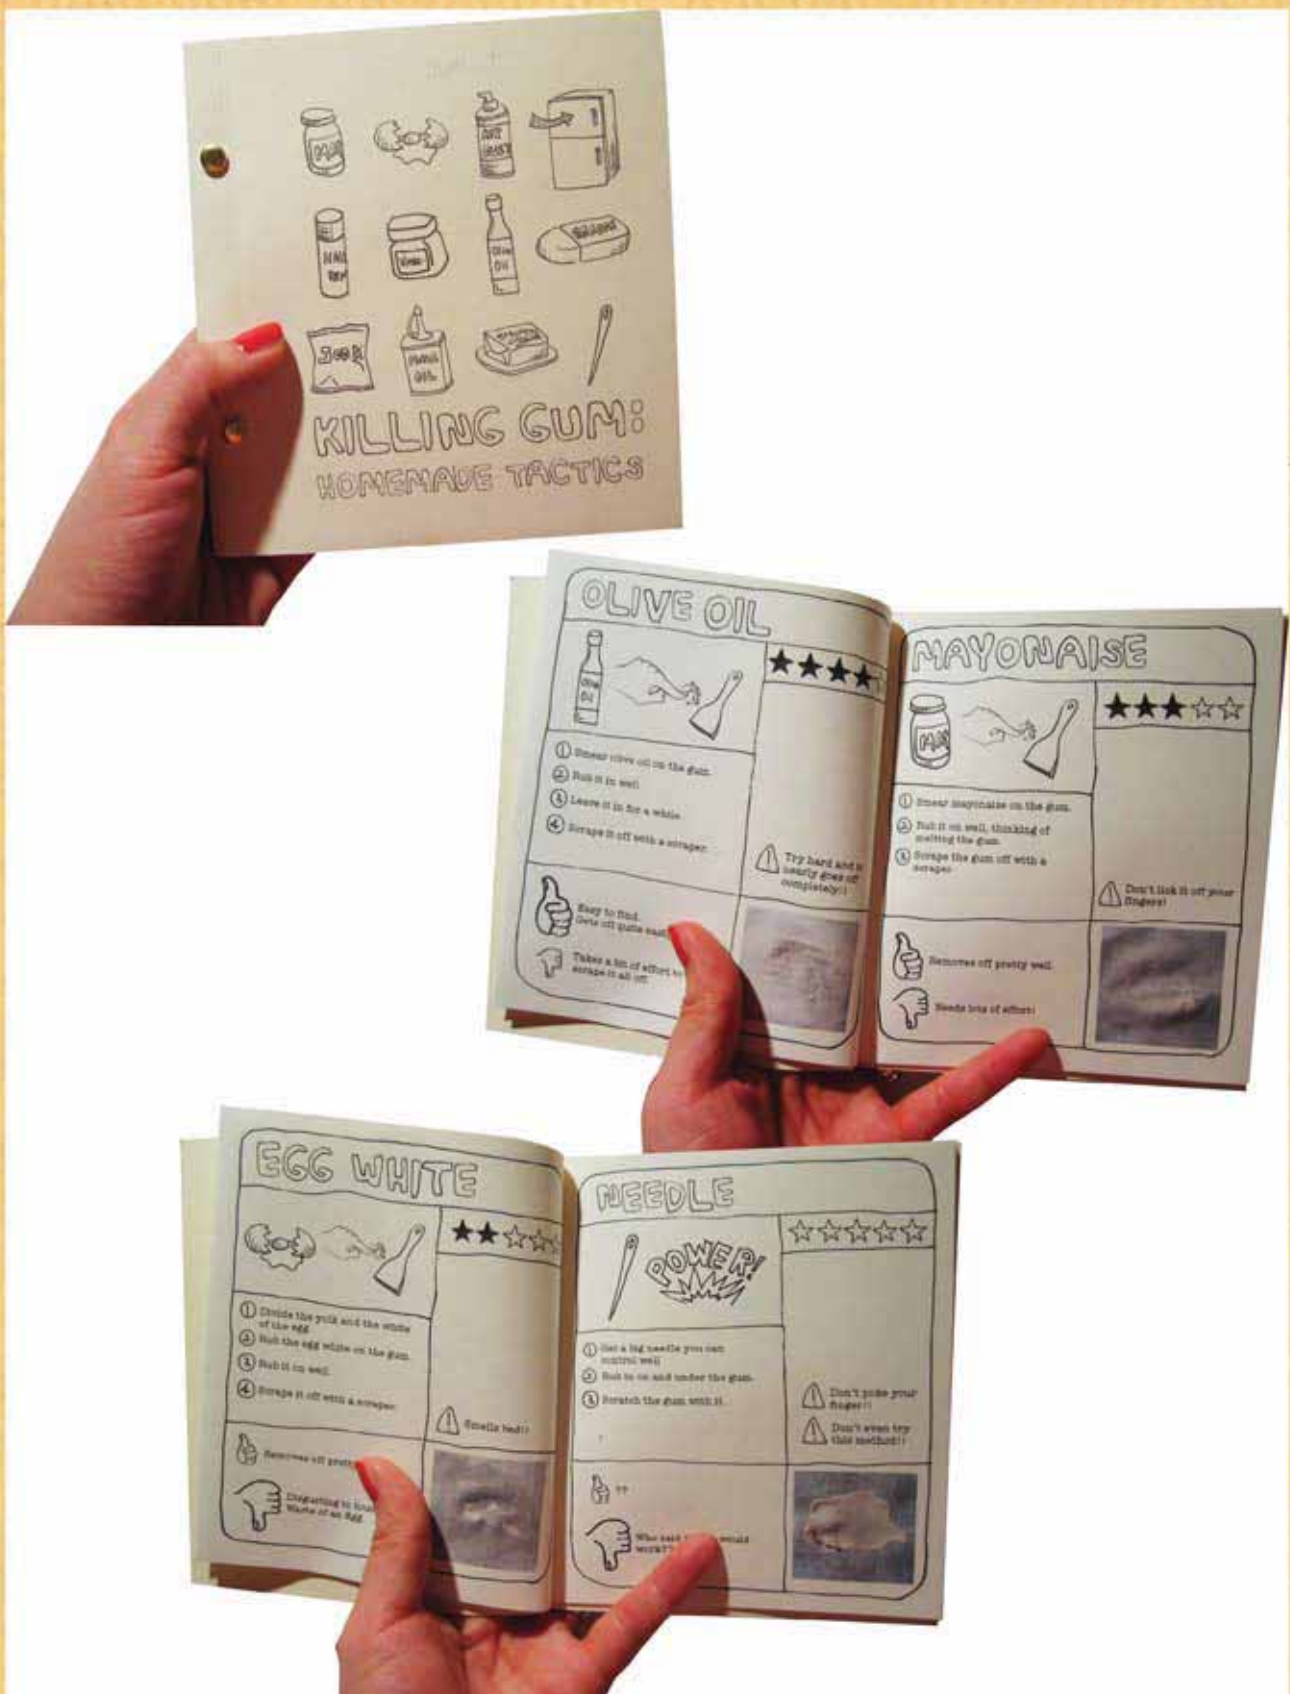 MAY
NAIL
REM
OLIVE
OIL
KILLING GUM:
HOMEMADE TACTICS
OLIVE OIL
OLIVE
OIL
1 Smear olive oil on the gum.
2 Rub it in well
3 Leave it in for a while.
4 Scrape it off with a scraper.
Try hard and it
nearly goes off
completely!!
Easy to find.
Gets off quite
Takes a bit of effort to
scrape it all off.
MAYONAISE
MAY
1 Smear mayonaise on the gum.
2 Rub it on well, thinking of
melting the gum.
3 Scrape the gum off with a
scraper
Don't lick it off your
fingers!
Removes off pretty well.
Needs lots of effort!
EGG WHITE
1 Divide the yolk and the white
of the egg
2 Rub the egg white on the gum.
3 Rub it on well.
4 Scrape it off with a scraper.
Smells bad!!
Removes off
Disgusting to
Waste of an Egg.
NEEDLE
POWER!
1 Get a big needle you can
control well
2 Rub in on and under the gum.
3 Scratch the gum with it.
Don't poke your
finger!!
Don't even try
this method!!
??
Who said would
work??